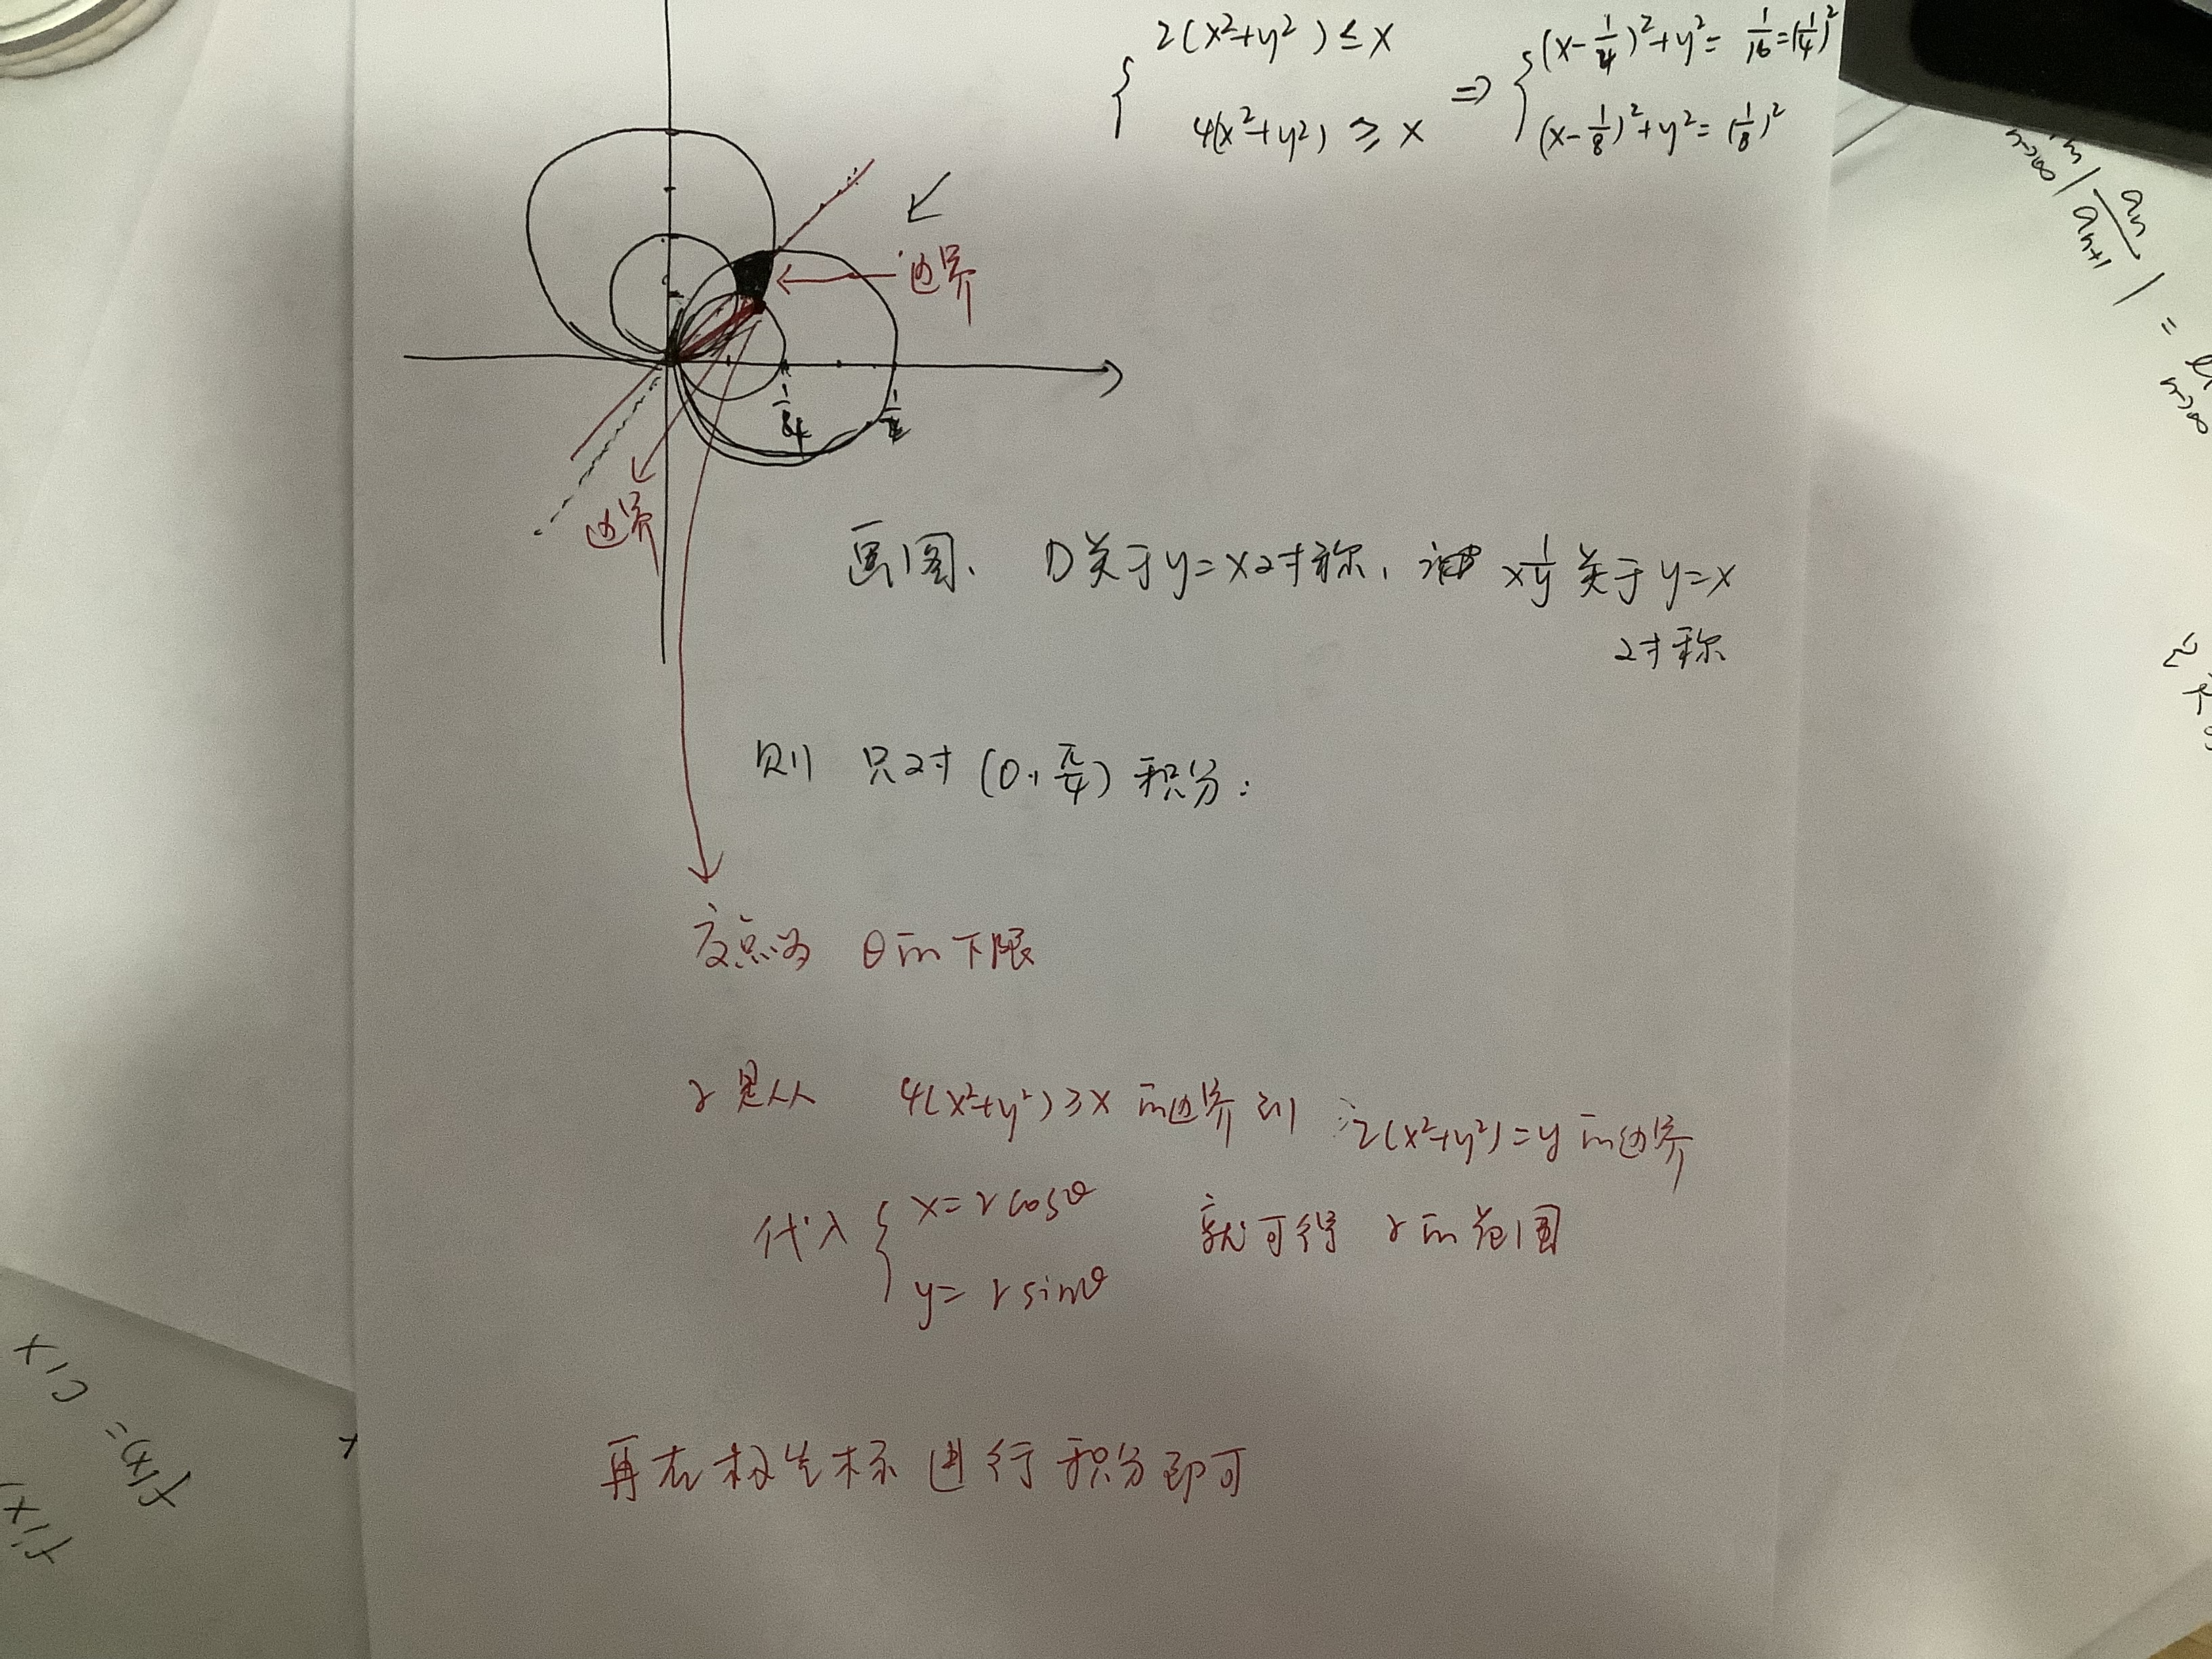 2(x²+y²) ≤ x
4(x²+y²) ≥ x
⇒
(x-1/4)²+y²= 1/16=(1/4)²
(x-1/8)²+y²=(1/8)²
边界
1/4
1/2
边界
画图、 D关于y=x对称, 1/xy 关于y=x
对称
则 只对(0,π/4)积分:
交点为 θ的下限
r是从 4(x²+y²)≥x 的边界到 2(x²+y²)=y的边界
代入 { x=rcosθ
y=rsinθ
就可得 r的范围
再在极坐标进行积分即可